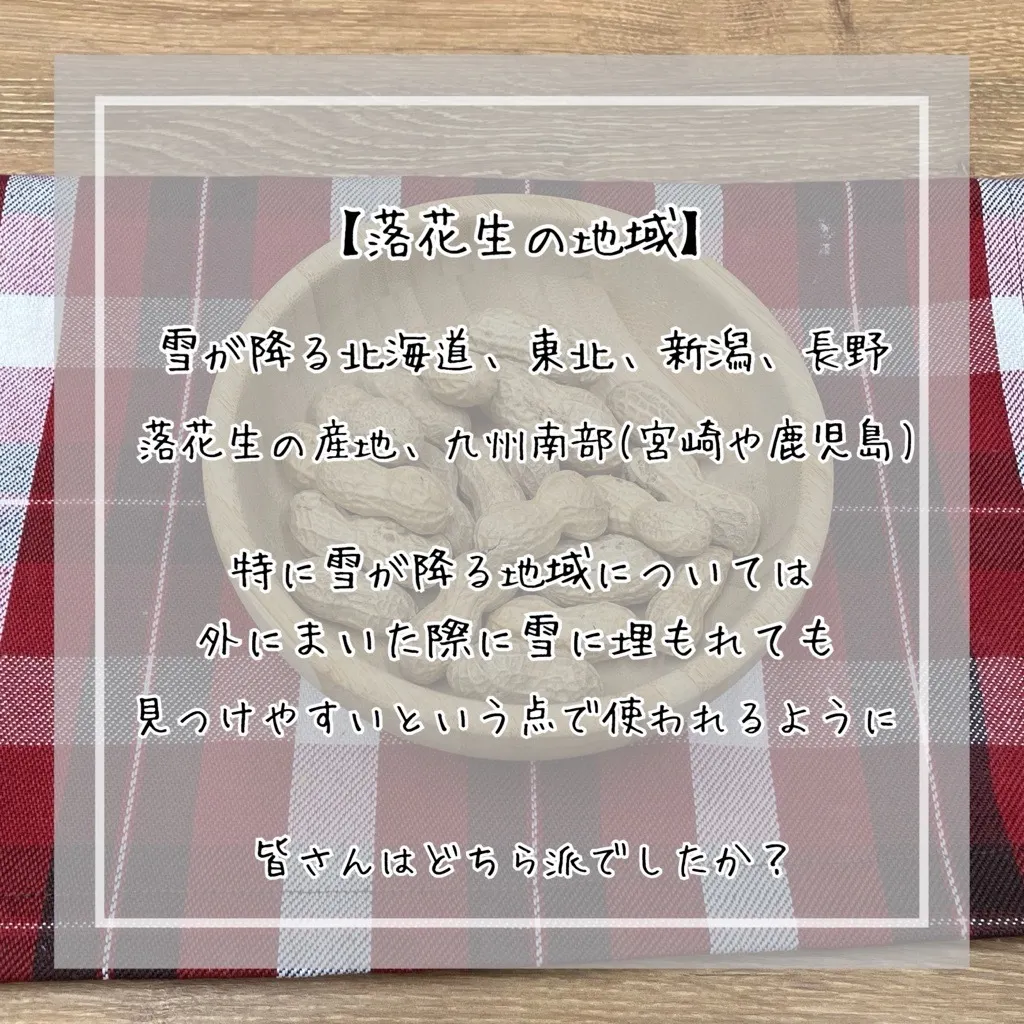 【落花生の地域】
雪が降る北海道、東北、新潟、長野
落花生の産地、九州南部(宮崎や鹿児島)
特に雪が降る地域については
外にまいた際に雪に埋もれても
見つけやすいという点で使われるように
皆さんはどちら派でしたか?